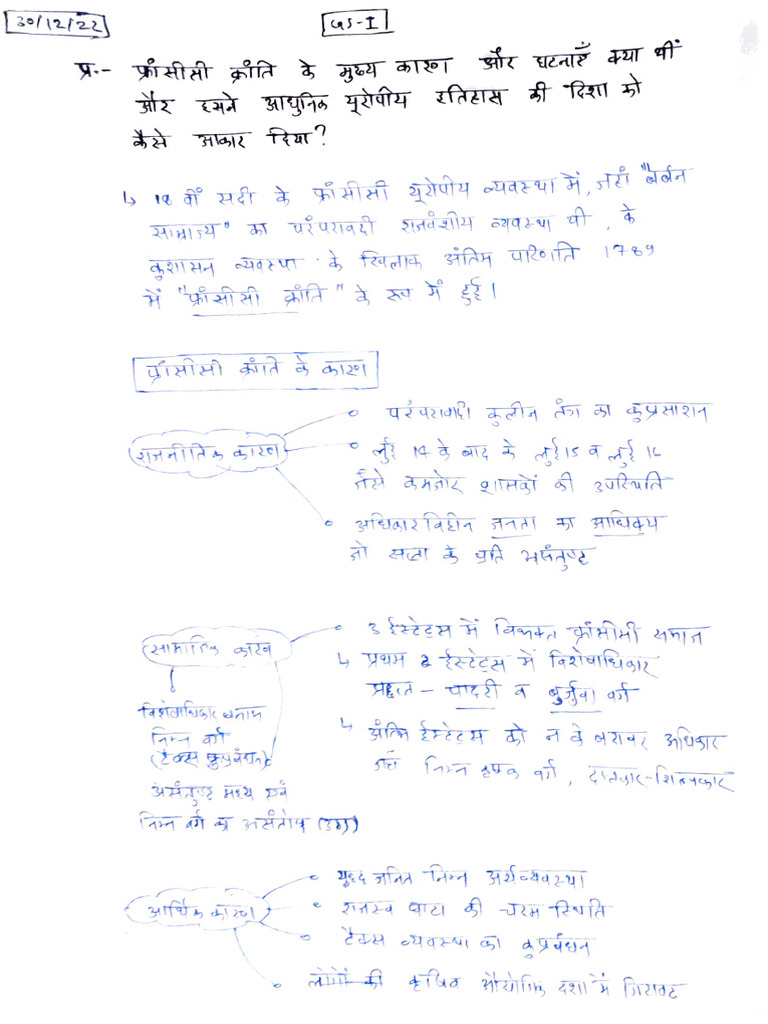 30/12/22
GS-I
प्र.- फ्रांसीसी क्रांति के मुख्य कारण और घटनाएँ क्या थीं
और इसने आधुनिक यूरोपीय इतिहास की दिशा को
कैसे आकार दिया?
↳ 18 वीं सदी के फ्रांसीसी यूरोपीय व्यवस्था में, जहां "बर्बन
साम्राज्य" का परंपरावादी राजवंशीय व्यवस्था थी, के
कुशासन व्यवस्था के खिलाफ अंतिम परिणति 1789
में "फ्रांसीसी क्रांति" के रूप में हुई।
फ्रांसीसी क्रांति के कारण
राजनीतिक कारण
परंपरावादी कुलीन तंत्र का कुप्रसाशन
लुई 14 के बाद के लुई 15 व लुई 16
जैसे कमजोर शासकों की उपस्थिति
अधिकार विहीन जनता का आधिक्य
जो सत्ता के प्रति असंतुष्ट
सामाजिक कारण
3 ईस्टेट्स में विभक्त फ्रांसीसी समाज
↳ प्रथम 2 ईस्टेट्स में विशेषाधिकार
प्रदत्त - पादरी व बुर्जुवा वर्ग
↳ अंतिम ईस्टेट्स को न के बराबर अधिकार
जहाँ निम्न कृषक वर्ग, दस्तकार-शिल्पकार
विशेषाधिकार बनाम
निम्न वर्ग
(टैक्स कुप्रबंधन)
असंतुष्ट मध्य एवं
निम्न वर्ग का असंतोष (उग्र)
आर्थिक कारण
युद्ध जनित निम्न अर्थव्यवस्था
राजस्व घाटा की चरम स्थिति
टैक्स व्यवस्था का कुप्रबंधन
लोगों की कृषिव औद्योगिक दशा में गिरावट